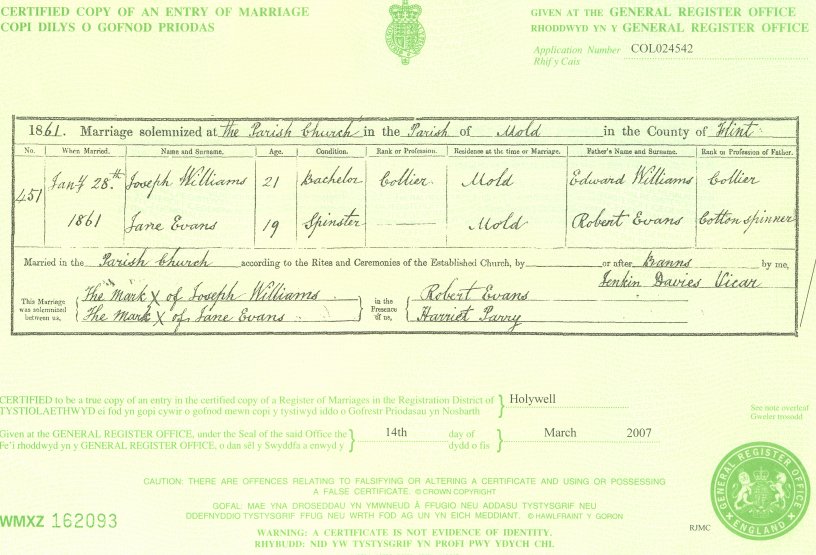 CERTIFIED COPY OF AN ENTRY OF MARRIAGE
COPI DILYS O GOFNOD PRIODAS
GIVEN AT THE GENERAL REGISTER OFFICE
RHODDWYD YN Y GENERAL REGISTER OFFICE
Application Number COL024542
Rhif y Cais
1861. Marriage solemnized at the Parish Church in the Parish of Mold in the County of Flint
No. When Married. Name and Surname. Age. Condition. Rank or Profession. Residence at the time or Marriage. Father's Name and Surname. Rank or Profession of Father.
451 Jany 28th Joseph Williams 21 Bachelor Collier Mold Edward Williams Collier
1861 Jane Evans 19 Spinster Mold Robert Evans Cotton spinner
Married in the Parish Church according to the Rites and Ceremonies of the Established Church, by or after Banns by me,
Jenkin Davies Vicar
This Marriage was solemnized between us,
The Mark X of Joseph Williams
The Mark X of Jane Evans
in the Presence of us,
Robert Evans
Harriet Parry
CERTIFIED to be a true copy of an entry in the certified copy of a Register of Marriages in the Registration District of Holywell
TYSTIOLAETHWYD ei fod yn gopi cywir o gofnod mewn copi y tystiwyd iddo o Gofrestr Priodasau yn Nosbarth
See note overleaf
Gweler trosodd
Given at the GENERAL REGISTER OFFICE, under the Seal of the said Office the 14th day of March 2007
Fe'i rhoddwyd yn y GENERAL REGISTER OFFICE, o dan sêl y Swyddfa a enwyd y dydd o fis
CAUTION: THERE ARE OFFENCES RELATING TO FALSIFYING OR ALTERING A CERTIFICATE AND USING OR POSSESSING
A FALSE CERTIFICATE. © CROWN COPYRIGHT
GOFAL: MAE YNA DROSEDDAU YN YMWNEUD Â FFUGIO NEU ADDASU TYSTYSGRIF NEU
DDEFNYDDIO TYSTYSGRIF FFUG NEU WRTH FOD AG UN YN EICH MEDDIANT. © HAWLFRAINT Y GORON
WARNING: A CERTIFICATE IS NOT EVIDENCE OF IDENTITY.
RHYBUDD: NID YW TYSTYSGRIF YN PROFI PWY YDYCH CHI.
WMXZ 162093
RJMC
GENERAL REGISTER OFFICE
ENGLAND